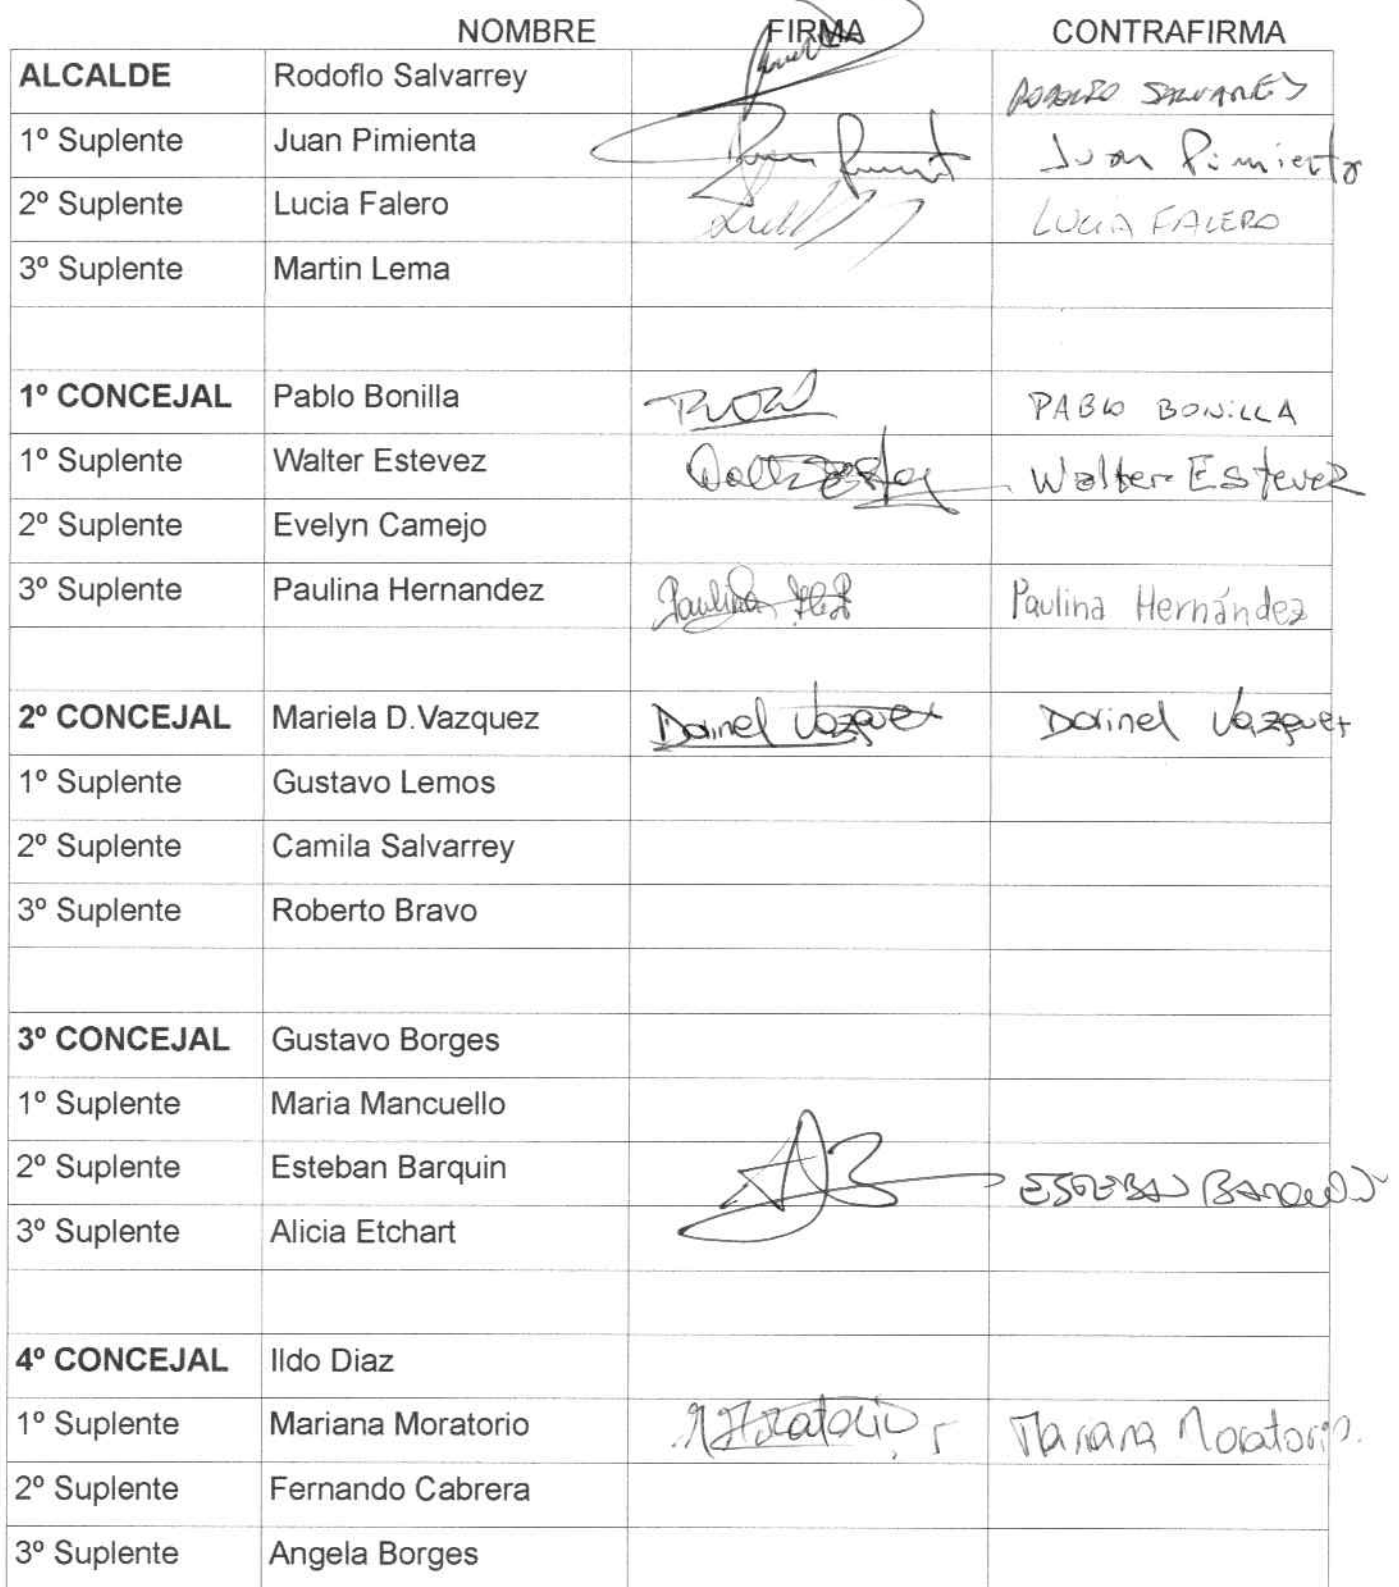 NOMBRE FIRMA CONTRAFIRMA
ALCALDE Rodoflo Salvarrey
1º Suplente Juan Pimienta Juan Pimienta
2º Suplente Lucia Falero LUCIA FALERO
3º Suplente Martin Lema
1º CONCEJAL Pablo Bonilla PABLO BONILLA
1º Suplente Walter Estevez Walter Estevez
2º Suplente Evelyn Camejo
3º Suplente Paulina Hernandez Paulina Paulina Hernández
2º CONCEJAL Mariela D.Vazquez Dorinel Vazquez Dorinel Vazquez
1º Suplente Gustavo Lemos
2º Suplente Camila Salvarrey
3º Suplente Roberto Bravo
3º CONCEJAL Gustavo Borges
1º Suplente Maria Mancuello
2º Suplente Esteban Barquin ESTEBAN BARQUIN
3º Suplente Alicia Etchart
4º CONCEJAL Ildo Diaz
1º Suplente Mariana Moratorio Mariana Moratorio.
2º Suplente Fernando Cabrera
3º Suplente Angela Borges